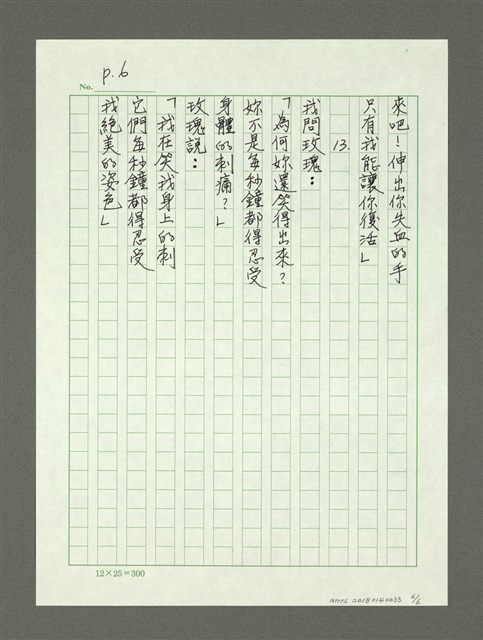 p.6
No.
來吧！伸出你失血的手
只有我能讓你復活」
13.
我問玫瑰：
「為何妳還笑得出來？
妳不是每秒鐘都得忍受
身體的刺痛？」
玫瑰說：
「我在笑我身上的刺
它們每秒鐘都得忍受
我絕美的姿色」
12×25=300
NMTL 20180140033 6/6